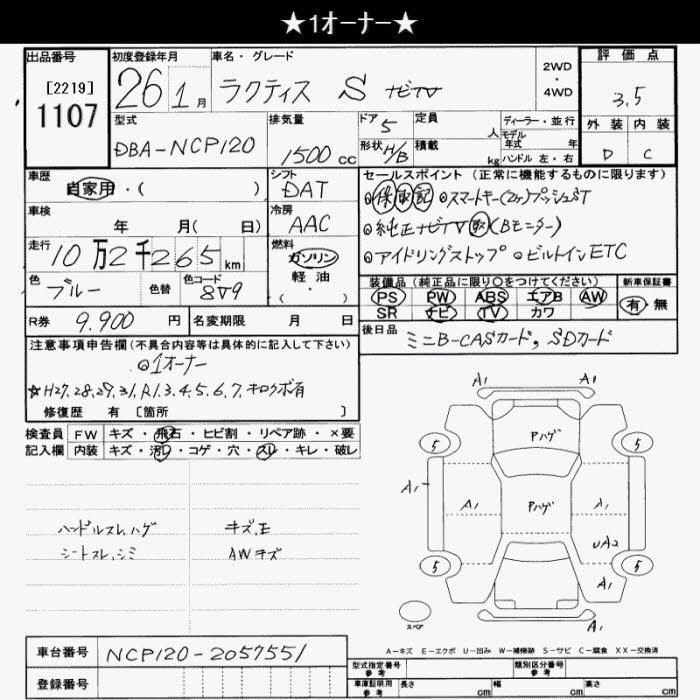 ★1オーナー★
出品番号
[2219]
1107
初度登録年月
26年1月
車名・グレード
ラクティス S ナビTV
2WD
・
4WD
評価点
3.5
外装 内装
D C
型式
DBA-NCP120
排気量
1500cc
ドア 5
形状 H/B
定員 人
積載 kg
ディーラー・並行
モデル年式 年
ハンドル 左・右
車歴
自家用・( )
シフト
DAT
車検
年 月( 日)
冷房
AAC
走行
10万2千265km
燃料
ガソリン
軽・油
・( )
色
ブルー
色替
色コード
8V9
R券 9.900円
名変期限 月 日
セールスポイント(正常に機能するものに限ります)
◎保取記 ◎スマートキー(2ヶ)プッシュST
◎純正ナビTV取(Bモニター)
◎アイドリングストップ ◎ビルトインETC
装備品(純正品に限り○をつけてください)
PS PW ABS エアB AW
SR ナビ TV カワ
新車保証書
有・無
後日品
ミニB-CASカード, SDカード
注意事項申告欄(不具合内容等は具体的に記入して下さい)
◎1オーナー
☆H27,28,29,31,R1,3,4,5,6,7,キロクボ有
修復歴 有 [箇所 ]
検査員記入欄
FW キズ・飛石・ヒビ割・リペア跡・×要
内装 キズ・汚れ・コゲ・穴・スレ・キレ・破レ
ハンドルスレ,ハゲ
シートスレ,シミ
キズ,E
AWキズ
A1 A1
Pハゲ
5 5
A1
A1 Pハゲ A1
UA2
5 5
A1
スペア
A1
A-キズ E-エクボ U-凹み W-補修跡 S-サビ C-腐食 XX-交換済
車台番号
NCP120-2057551
登録番号
型式指定番号
参考
類別区分番号
参考
車庫証明用
参考
長さ cm
幅 cm
高さ cm